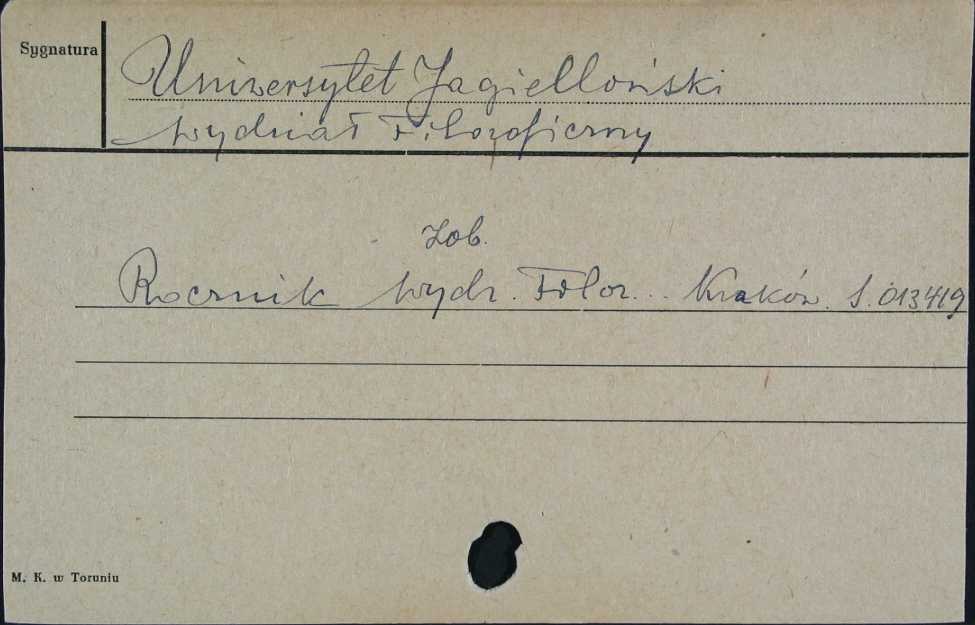 Sygnatura
Uniwersytet Jagielloński
Wydział Filozoficzny
Zob.
Rocznik Wydz. Filoz... Kraków. S. 013419
M. K. w Toruniu